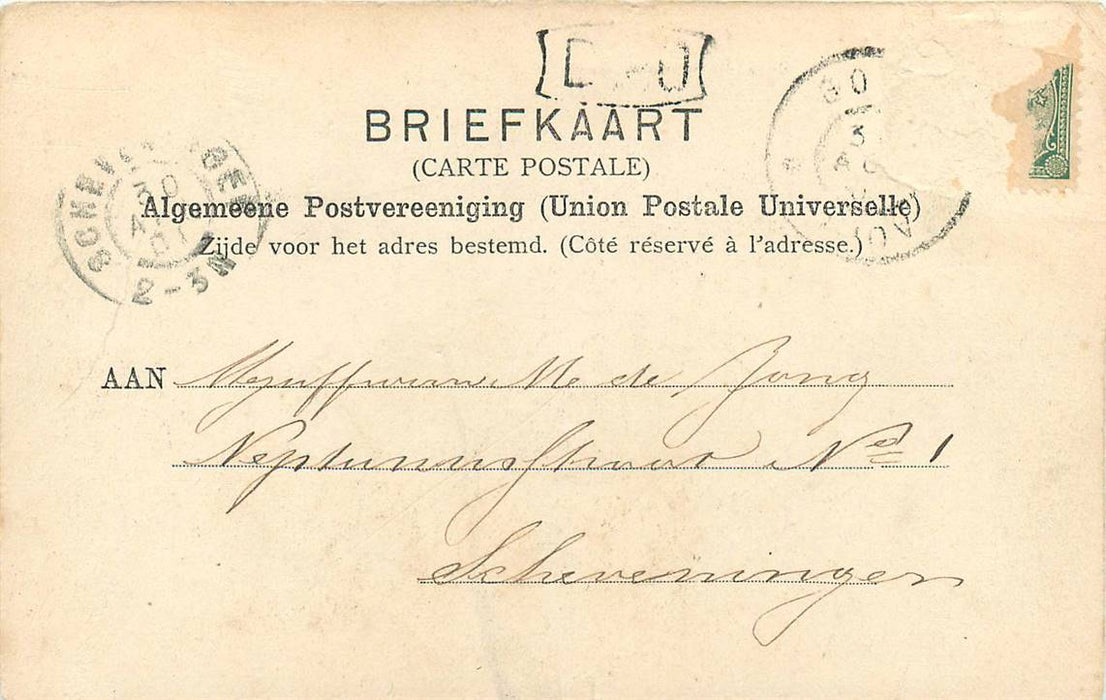 BRIEFKAART
(CARTE POSTALE)
Algemeene Postvereeniging (Union Postale Universelle)
Zijde voor het adres bestemd. (Côté réservé à l'adresse.)
2-3N
AAN Mejuffrouw M de Jong
Neptunusstraat No 1
Scheveningen